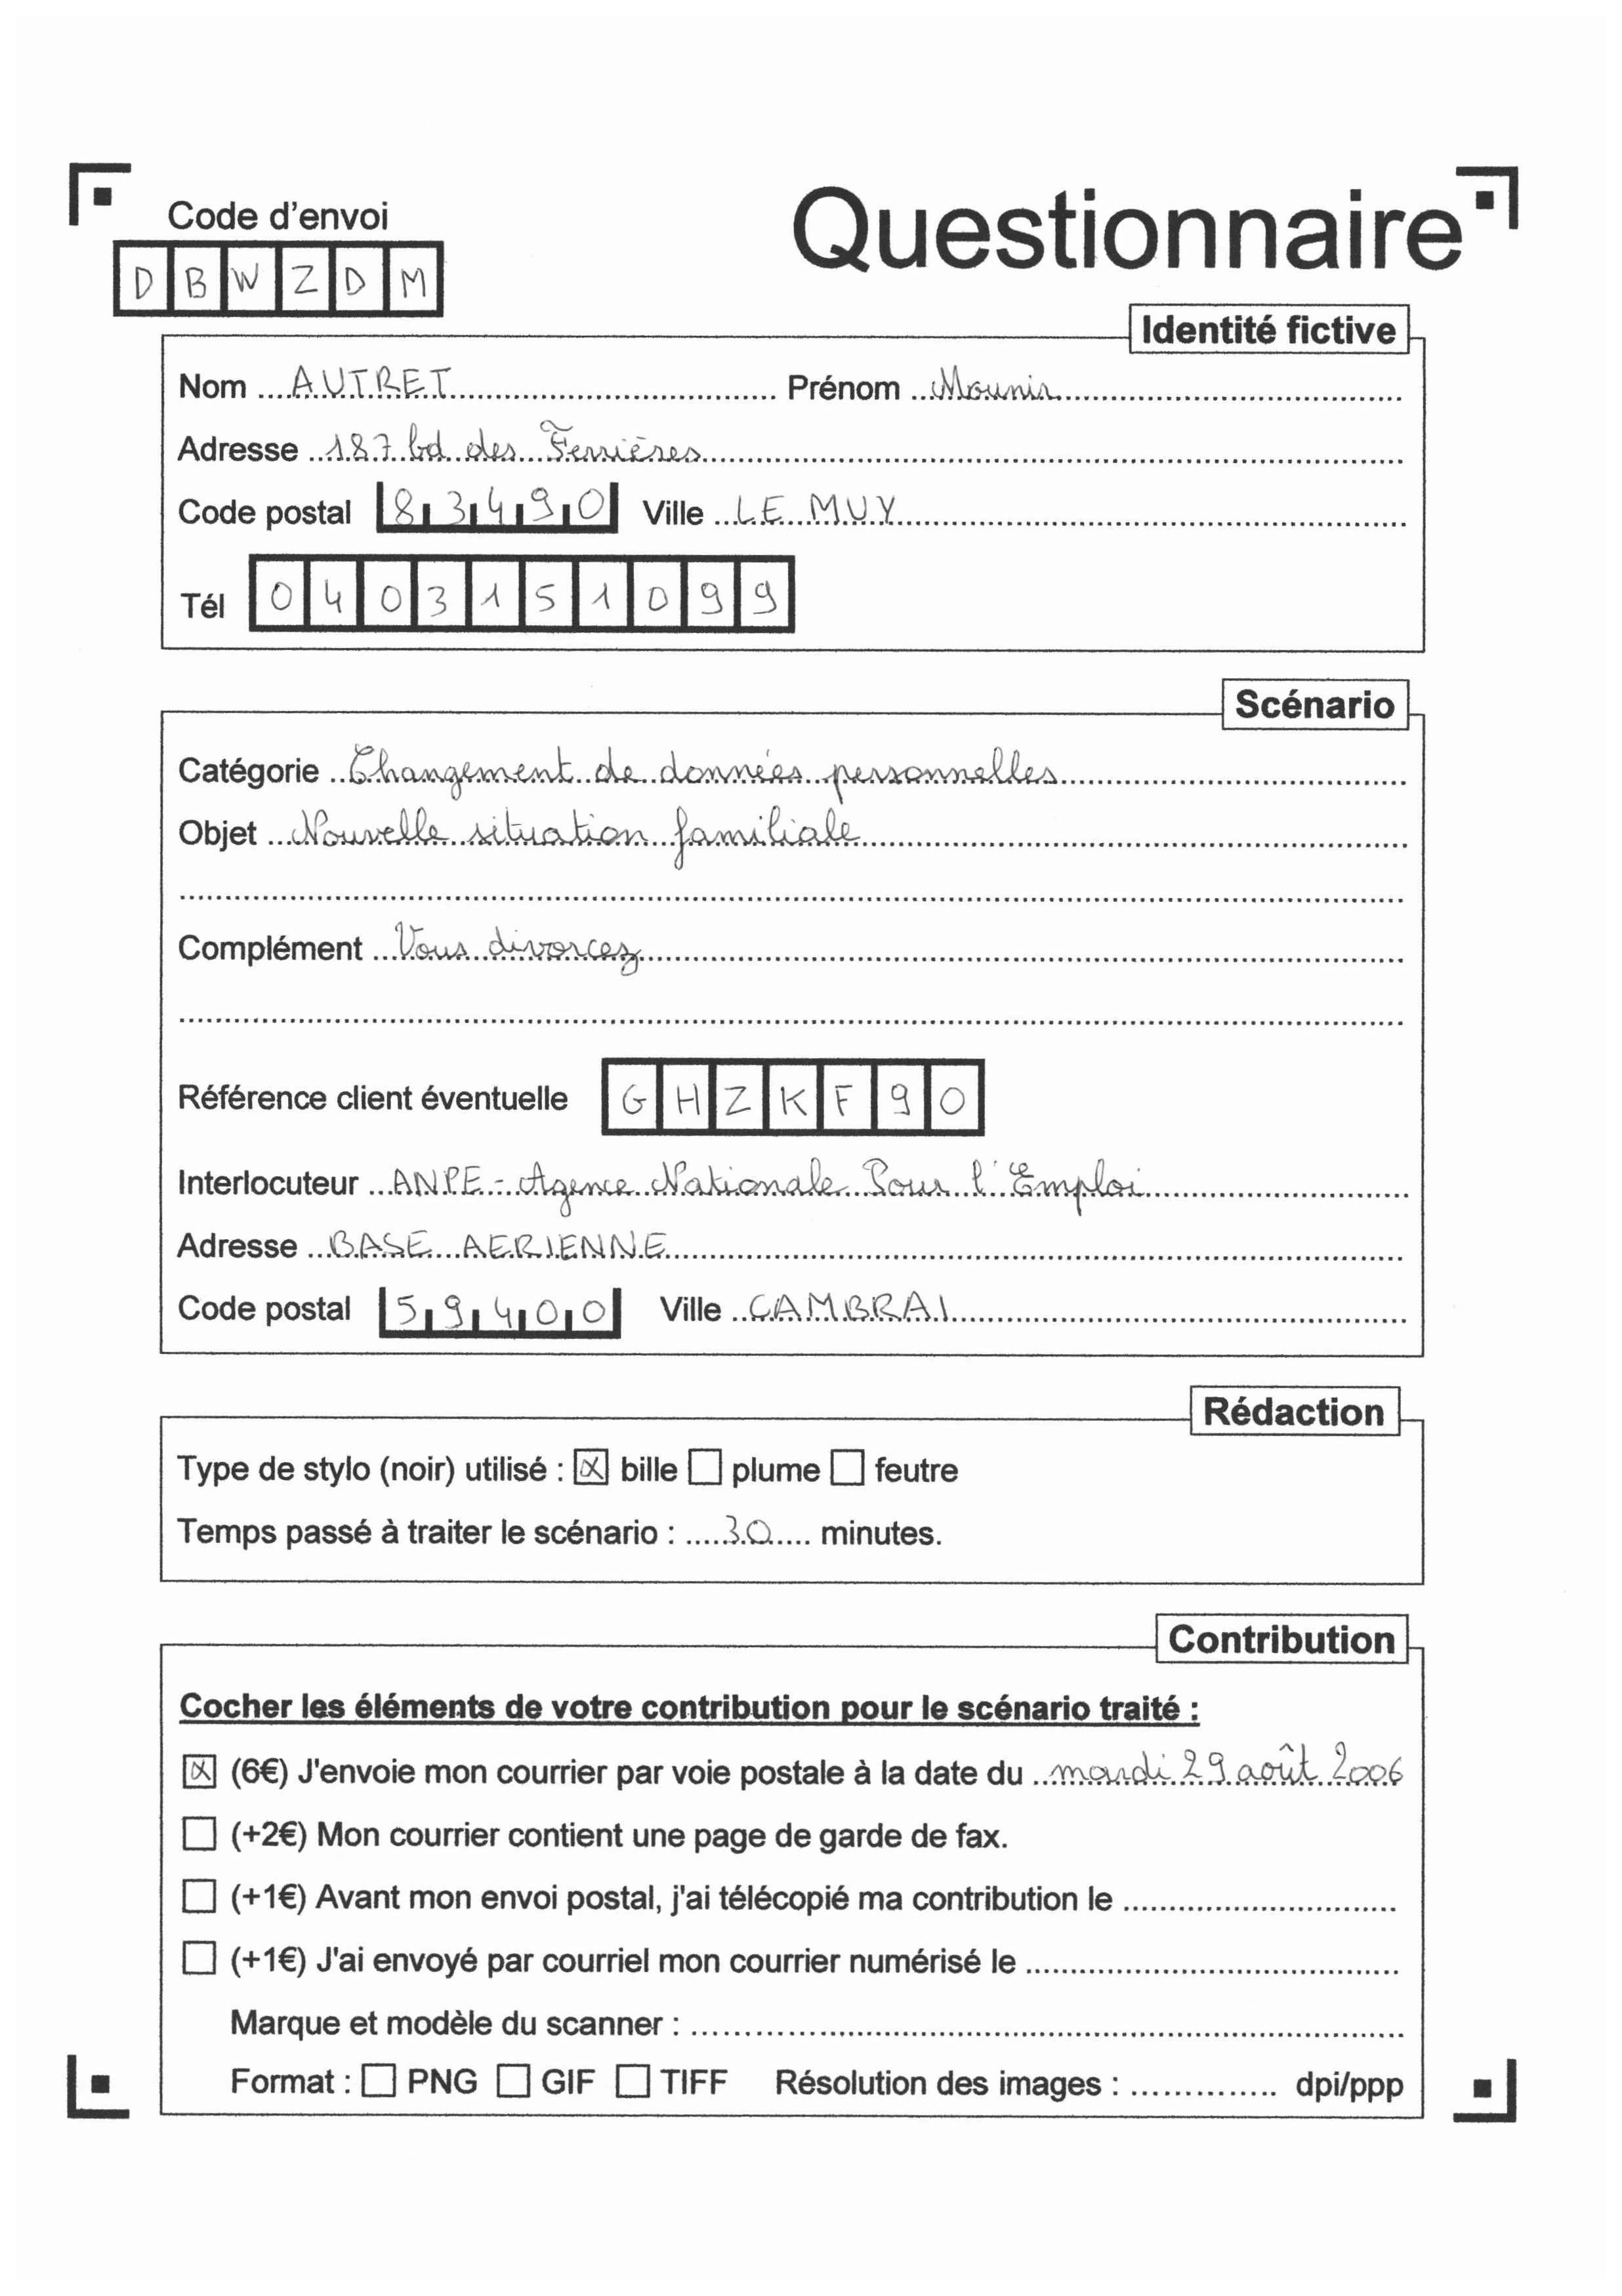 Code d'envoi
Questionnaire
D B W Z D M
Identité fictive
Nom AUTRET Prénom Mounir
Adresse 187 bd des Ferrières
Code postal 83490 Ville LE MUY
Tél 0403151099
Scénario
Catégorie Changement de données personnelles
Objet Nouvelle situation familiale
Complément Vous divorcez
Référence client éventuelle GHZKF90
Interlocuteur ANPE - Agence Nationale Pour l'Emploi
Adresse BASE AERIENNE
Code postal 59400 Ville CAMBRAI
Rédaction
Type de stylo (noir) utilisé : ☒ bille ☐ plume ☐ feutre
Temps passé à traiter le scénario : 30 minutes.
Contribution
Cocher les éléments de votre contribution pour le scénario traité :
☒ (6€) J'envoie mon courrier par voie postale à la date du mardi 29 août 2006
☐ (+2€) Mon courrier contient une page de garde de fax.
☐ (+1€) Avant mon envoi postal, j'ai télécopié ma contribution le
☐ (+1€) J'ai envoyé par courriel mon courrier numérisé le
Marque et modèle du scanner :
Format : ☐ PNG ☐ GIF ☐ TIFF Résolution des images : dpi/ppp